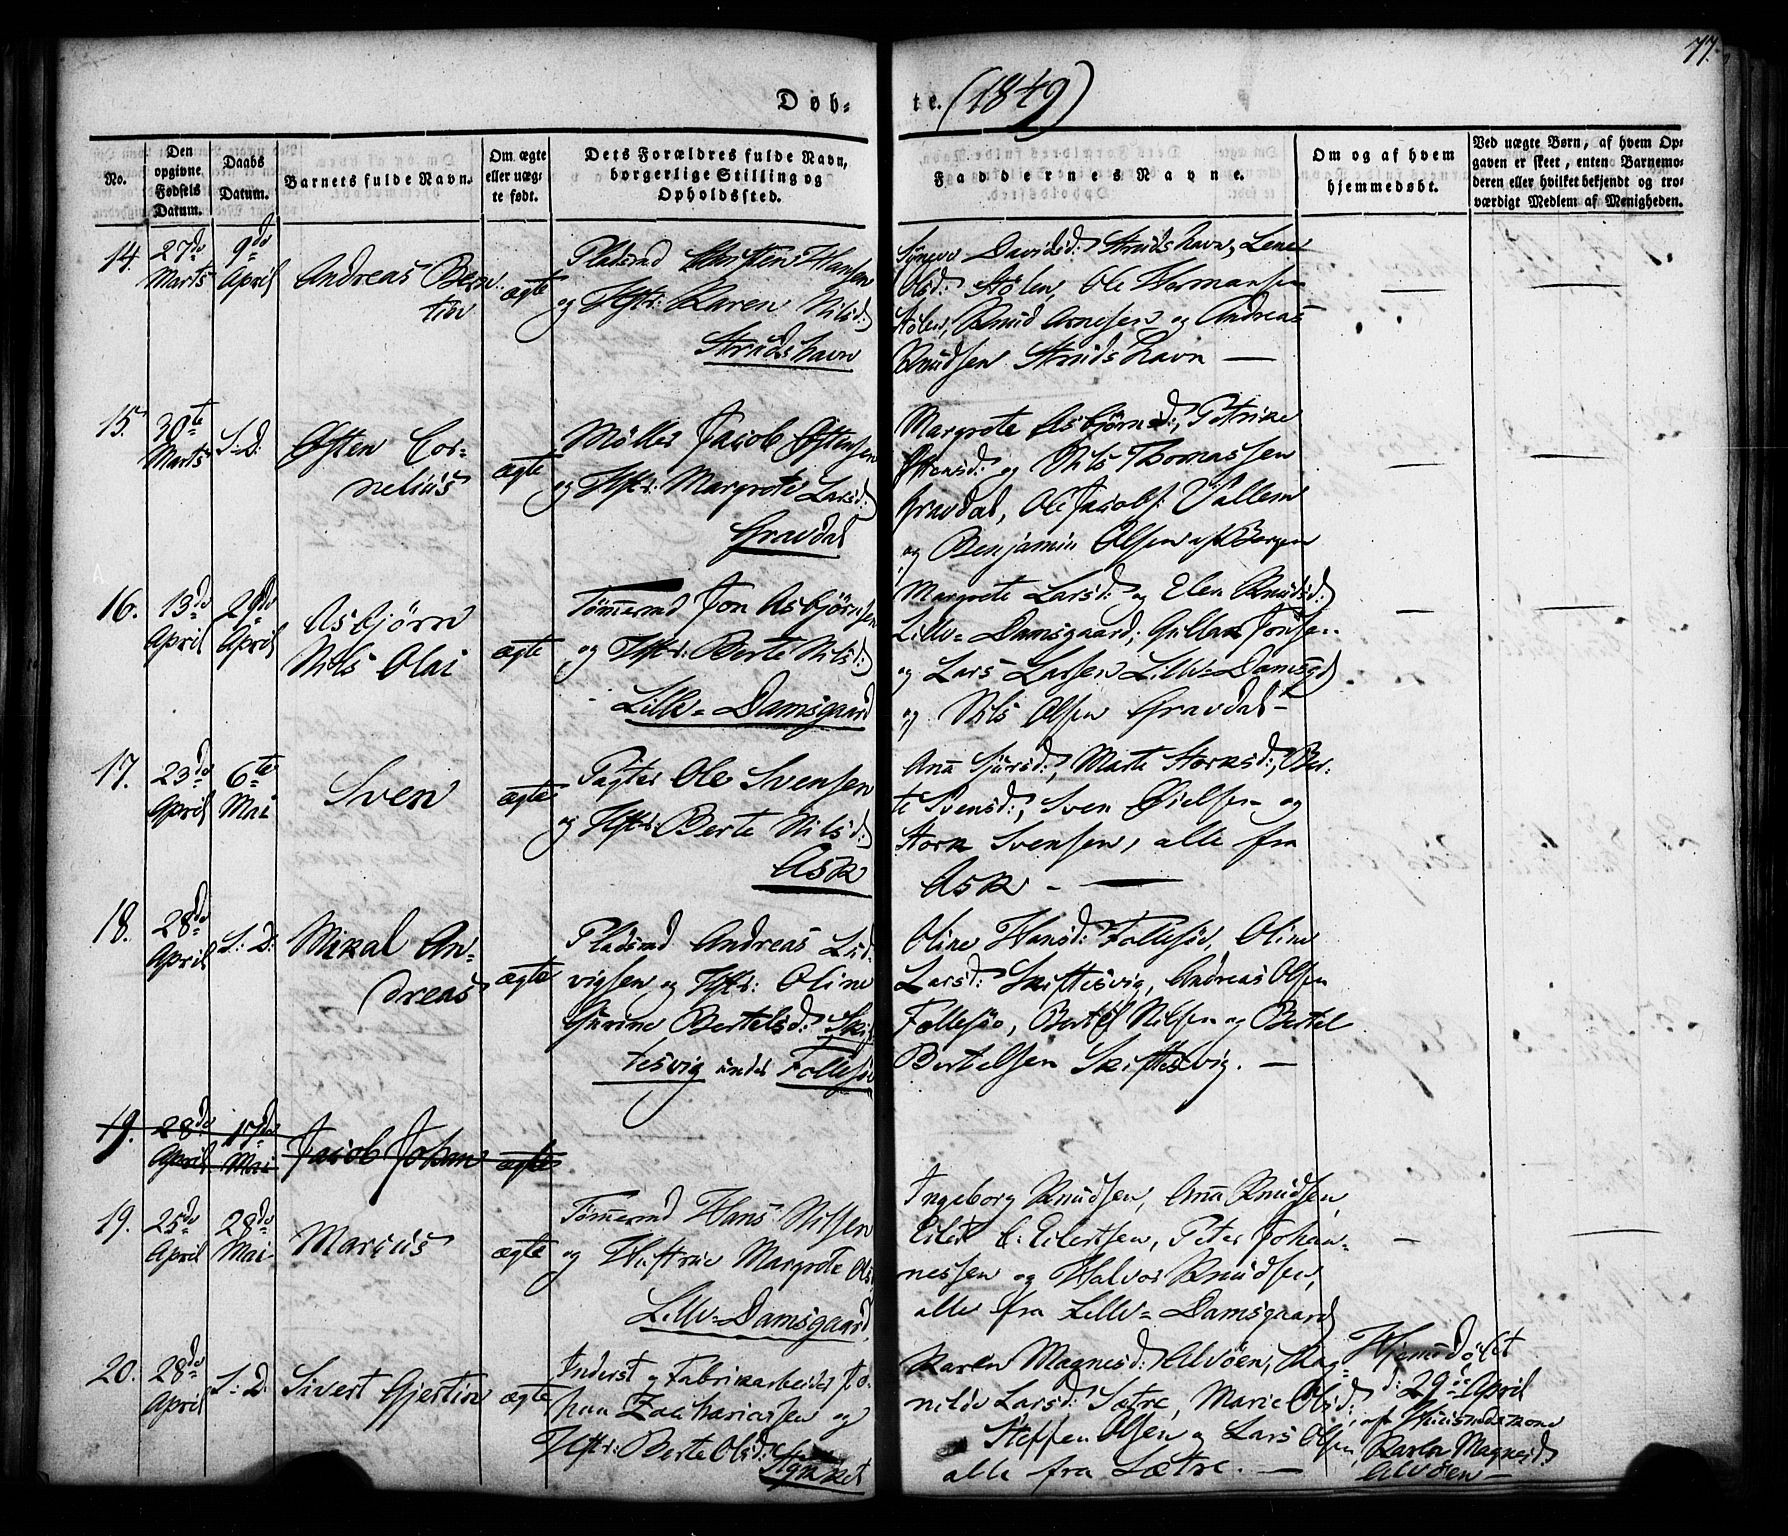 77.
Døb-
te. (1849)
No.
Den opgivne Fødsels Datum.
Daabs Datum.
Barnets fulde Navn.
Om ægte eller uægte født.
Dets Forældres fulde Navn, borgerlige Stilling og Opholdssted.
Faddernes Navne.
Om og af hvem hjemmedøbt.
Ved uægte Børn, af hvem Opgaven er skeet, enten Barnemoderen eller hvilket bekjendt og troværdigt Medlem af Menigheden.
14. 27de Marts 9de April Andreas Bertin ægte
Pladsmd Christen Hansen
og Hstr: Karen Nilsd:
Strudshavn
Davidsd: Strudshavn, Lene
Olsd: Stølen, Ole Hermansen
Stølen, Knud Arnesen og Andreas
Knudsen Strudshavn —
— —
15. 30te Marts S.D. Østen Cornelius ægte
Møller Jacob Østensen
og Hstr: Margrete Larsd:
Gravdal
Margrete Asbjørnsd:, Petrike
Østensd: og Nils Thomassen
Gravdal, Ole Jacobs:
og Benjamin Olsen af Bergen
— —
16. 13de April 29de April Asbjørn Nils Olai ægte
Tømmermd Jon Asbjørnsen
og Hstr: Berte Nilsd:
Lille-Damsgaard
Margrete Larsd: og Elen Knudsd:
Lille-Damsgaard, Jonsen
og Lars Larsen Lille-Damsgd
og Nils Olsen Gravdal —
— —
17. 23de April 6te Mai Sven ægte
Pagter Ole Svensen
og Hstr: Berte Nilsd:
Ask
Ana Sjursd:, Marte Storksd:, Ber-
te Svensd:, Sven og
Stork Svensen, alle fra
Ask — —
18. 28de April S:D: Mikal Andreas ægte
Pladsmd Andreas Lud-
vigsen og Hstr: Oline
Gurine Bertelsd: Skif-
tesvig under Follesøe
Oline Hansd: Follesøe, Oline
Larsd: Skiftesvig, Andreas Olsen
Follesøe, Bertel Nilsen og Bertel
Bertelsen Skiftesvig. —
19. 28de April 17de Mai Jacob Johan ægte
19. 25de April 28de Mai Marius ægte
Tømmermd Hans Nilsen
og Hustrue Margrete Ols
Lille-Damsgaard
Ingeborg Knudsen, Ana Knudsen,
Eilert E. Eilertsen, Peter Johan-
nessen og Halvor Knudsen,
alle fra Lille-Damsgaard
— —
20. 28de April S:D. Sivert Gjertin ægte
Inderst og Fabrikarbeider Jo-
han Zachariassen og
Hstr: Berte Olsd:
Karen Magnesd: Alvøen, Rag-
nilde Larsd: Sætre, Marie Olsd:
Steffen Olsen og Lars Olsen,
alle fra Sætre. —
Hjemmedøbt
d: 29de April
af
Karen Magnesd:
Alvøen —